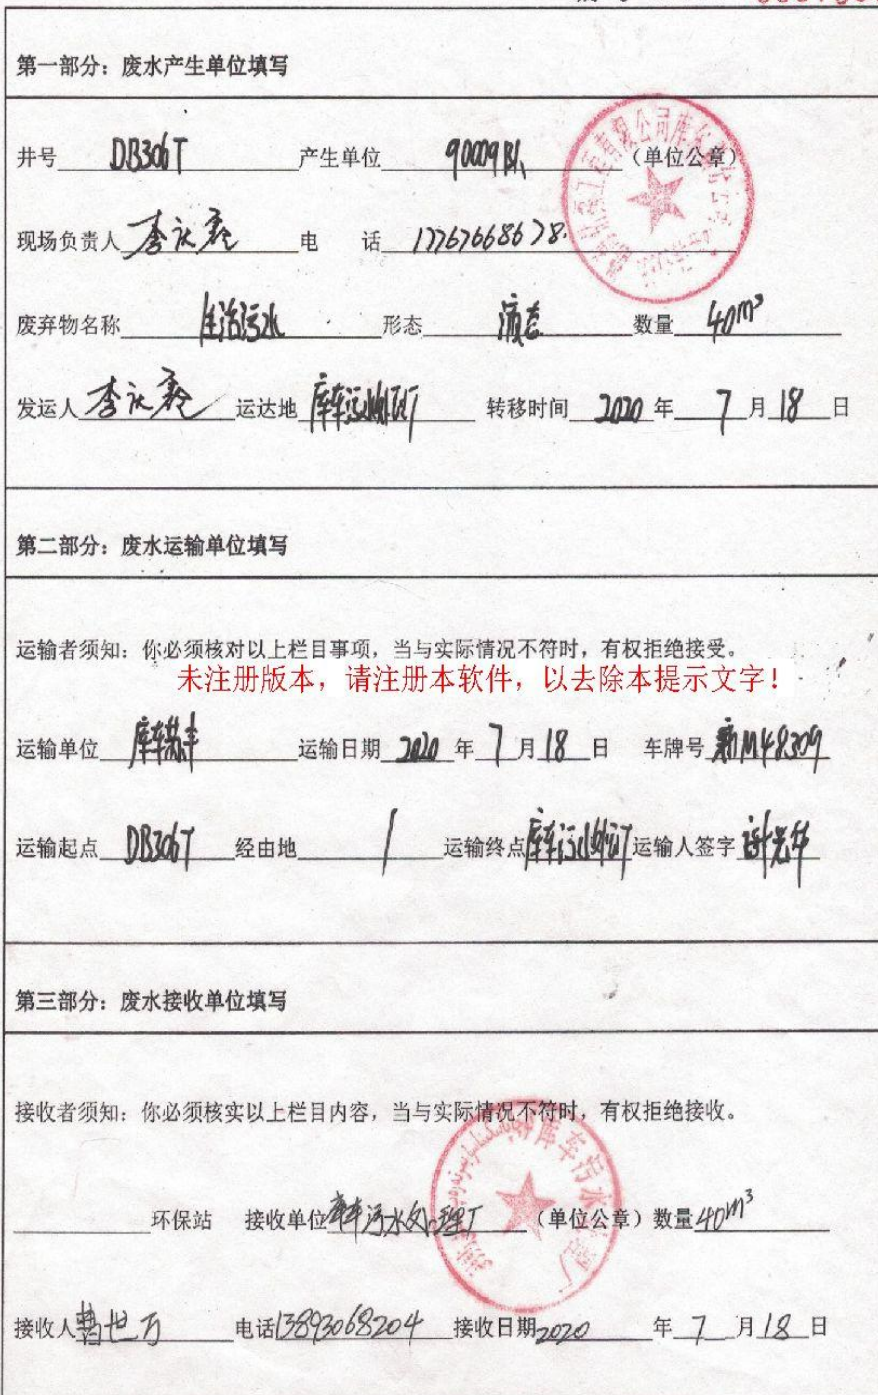 第一部分：废水产生单位填写
井号 DB306T 产生单位 90009队 （单位公章）
现场负责人 李 电 话 17767668678.
废弃物名称 生活污水 形态 液态 数量 40m³
发运人 李 运达地 库车污水处理厂 转移时间 2020 年 7 月 18 日
第二部分：废水运输单位填写
运输者须知：你必须核对以上栏目事项，当与实际情况不符时，有权拒绝接受。
未注册版本，请注册本软件，以去除本提示文字！
运输单位 库车 运输日期 2020 年 7 月 18 日 车牌号 新M48309
运输起点 DB306T 经由地 / 运输终点 库车污水处理厂 运输人签字
第三部分：废水接收单位填写
接收者须知：你必须核实以上栏目内容，当与实际情况不符时，有权拒绝接收。
环保站 接收单位 库车污水处理厂 （单位公章）数量 40m³
接收人 曹世万 电话 13893068204 接收日期 2020 年 7 月 18 日
库车污水处理厂